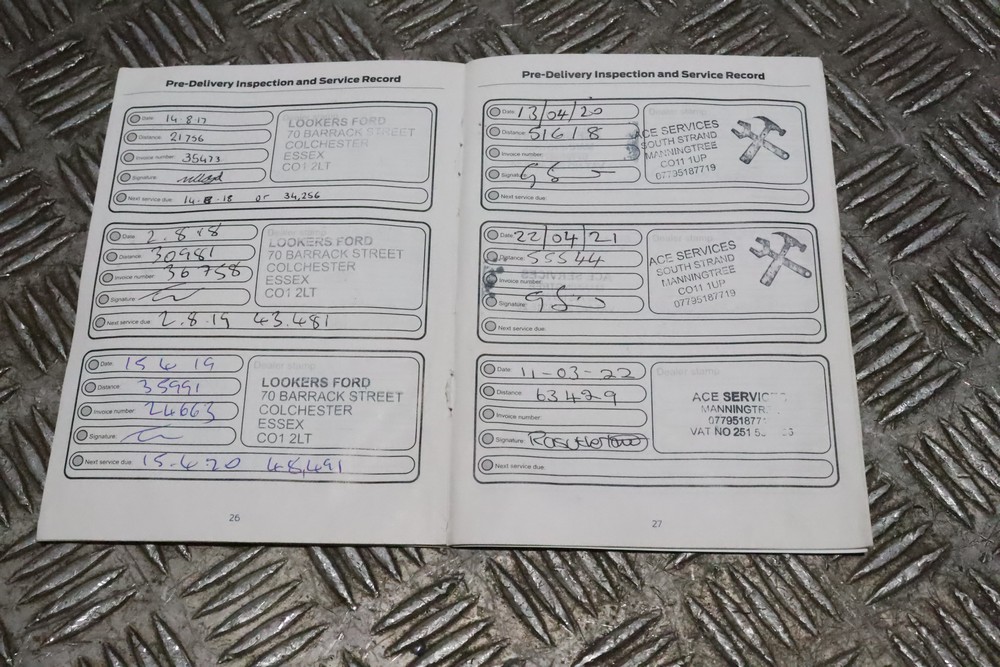 Pre-Delivery Inspection and Service Record
Date: 14.8.17
Distance: 21756
Invoice number: 35473
Signature:
Next service due: 14.8.18 or 34,256
LOOKERS FORD
70 BARRACK STREET
COLCHESTER
ESSEX
CO1 2LT
Date: 2.8.18
Distance: 30981
Invoice number: 36758
Signature:
Next service due: 2.8.19 43.481
Dealer stamp
LOOKERS FORD
70 BARRACK STREET
COLCHESTER
ESSEX
CO1 2LT
Date: 15 4 19
Distance: 35991
Invoice number: 24663
Signature:
Next service due: 15.4.20 48,491
Dealer stamp
LOOKERS FORD
70 BARRACK STREET
COLCHESTER
ESSEX
CO1 2LT
26
Pre-Delivery Inspection and Service Record
Date: 13/04/20
Distance: 51618
Invoice number:
Signature:
Next service due:
Dealer stamp
ACE SERVICES
SOUTH STRAND
MANNINGTREE
CO11 1UP
07795187719
Date: 22/04/21
Distance: 55544
Invoice number:
Signature:
Next service due:
Dealer stamp
ACE SERVICES
SOUTH STRAND
MANNINGTREE
CO11 1UP
07795187719
Date: 11-03-22
Distance: 63429
Invoice number:
Signature:
Next service due:
Dealer stamp
ACE SERVIC
MANNINGTR
077951877
VAT NO 251 5
27